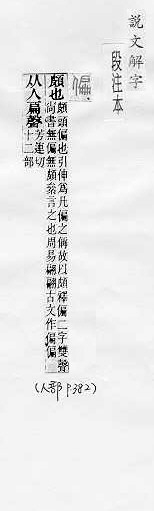 說文解字
段注本
偏
頗也
頗頭偏也引伸爲凡偏之偁故以頗釋偏二字雙聲
尙書無偏無頗亦言之也周易翩翩古文作偏偏
从人扁聲
芳連切
十二部
(人部 P382)